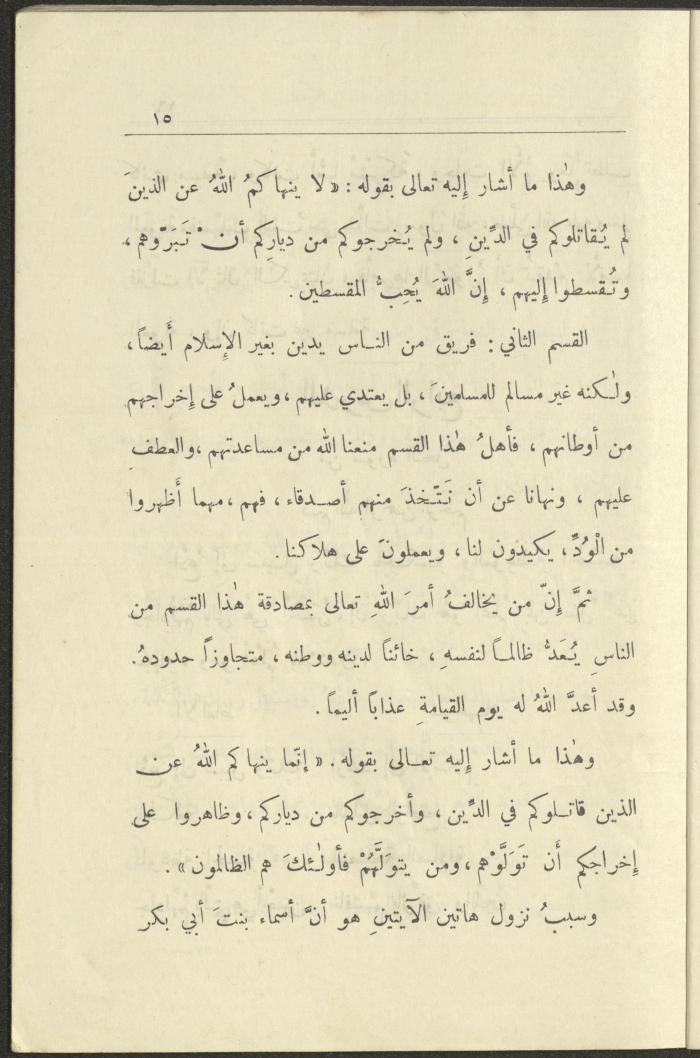 ١٥
وهٰذا ما أشار إليه تعالى بقوله : « لا ينهاكمُ اللهُ عن الذينَ
لم يُقاتلوكم في الدِّينِ ، ولم يُخرجوكم من دياركم أنْ تَبَرّوهم ،
وتُقسطوا إليهم ، إنَّ اللهَ يُحِبُّ المقسطين .
القسم الثاني : فريق من الناس يدين بغير الإسلام أَيضاً ،
ولٰكنه غير مسالم للمسلمينَ ، بل يعتدي عليهم ، ويعملُ على إخراجهم
من أوطانهم ، فأهلُ هٰذا القسم منعنا الله من مساعدتهم ، والعطفِ
عليهم ، ونهانا عن أن نَتّخذَ منهم أصدقاء ، فهم ، مهما أَظهروا
من الْوُدِّ ، يكيدون لنا ، ويعملونَ على هلاكنا .
ثمَّ إنّ من يخالفُ أمرَ اللهِ تعالى بمصادقة هٰذا القسم من
الناسِ يُعَدُّ ظالماً لنفسهِ ، خائناً لدينه ووطنه ، متجاوزاً حدودهُ .
وقد أعدَّ اللهُ له يوم القيامةِ عذاباً أليماً .
وهٰذا ما أشار إليه تعالى بقوله . « إنّما ينهاكم اللهُ عن
الذين قاتلوكم في الدِّين ، وأخرجوكم من دياركم ، وظاهروا على
إخراجكم أن تَوَلَّوْهم ، ومن يتوَلَّهُمْ فأولٰئكَ هم الظالمون » .
وسببُ نزول هاتين الآيتينِ هو أنَّ أسماء بنتَ أبي بكر